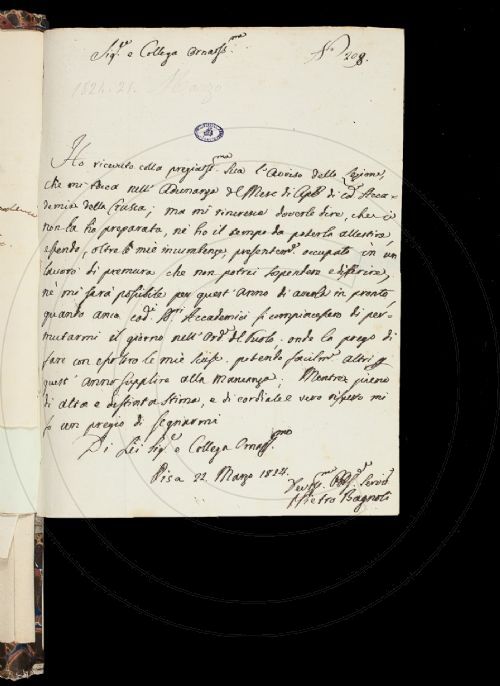 Sig.re e Collega Ornat.mo
N.o 208.
1824. 21. Marzo
Ho ricevuto colla pregiatis.ma Sua l'Avviso della Lezione,
che mi tocca nell'Adunanza del Mese di Aple di cod. Acca-
demia della Crusca; ma mi rincresce doverle dire, che io
non la ho preparata, nè ho il tempo da poterla allestire,
essendo, oltre le mie incumbenze, presentem. occupato in un
lavoro di premura che non potrei sospendere e differire,
nè mi sarà possibile per quest'Anno di averla in pronto
quando anco cod. Accademici si compiacessero di per-
mutarmi il giorno nell' del Ruolo; onde la prego di
fare con essoloro le mie scuse potendo facilm. altri
quest'anno supplire alla Mancanza; Mentre pieno
di alta e distinta stima, e di cordiale e vero rispetto mi
fo un pregio di segnarmi
Di Lei Sig.e e Collega Ornat.mo
Pisa 22 Marzo 1824.
Dev.mo Obb. Servit.
Pietro Bagnoli